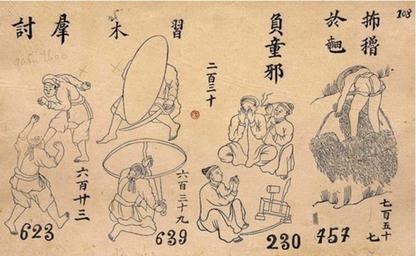 108
負童邪
二百三十
習
木
羣
討
七百五十
七
六百三十九
六百廿三
757
230
639
623